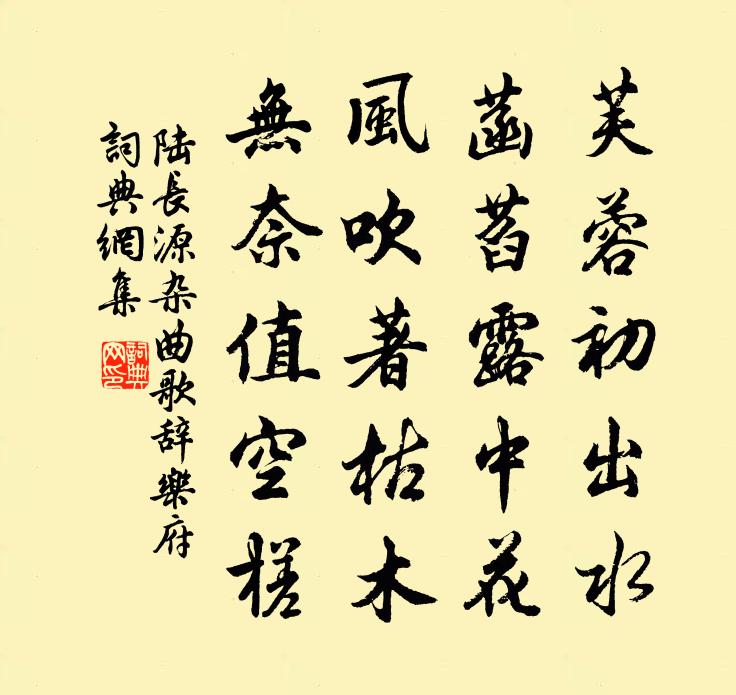 芙蓉初出水
菡萏露中花
風吹著枯木
無奈值空槎
陆長源杂曲歌辞樂府
詞典網集
詞典网印